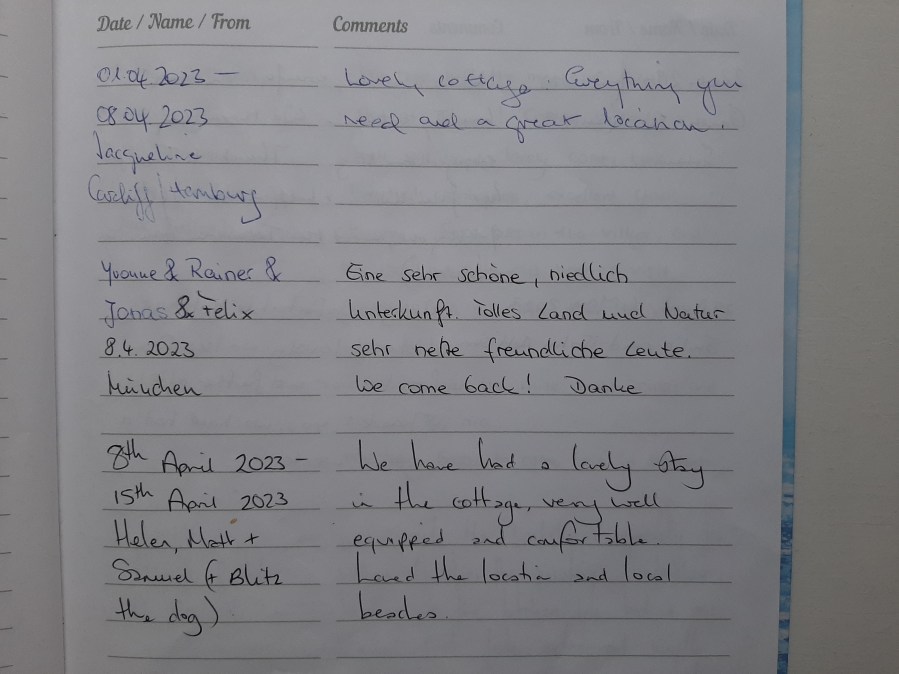 Date / Name / From Comments
01.04.2023 — Lovely cottage. Everything you
08.04.2023 need and a great location.
Jacqueline
Cardiff/Hamburg
Yvonne & Rainer & Eine sehr schöne, niedlich
Jonas & Felix Unterkunft. Tolles Land und Natur
8.4.2023 sehr nette freundliche Leute.
München We come back! Danke
8th April 2023 - We have had a lovely stay
15th April 2023 in the cottage, very well
Helen, Matt + equipped and comfortable.
Samuel (+ Blitz Loved the location and local
the dog) beaches.